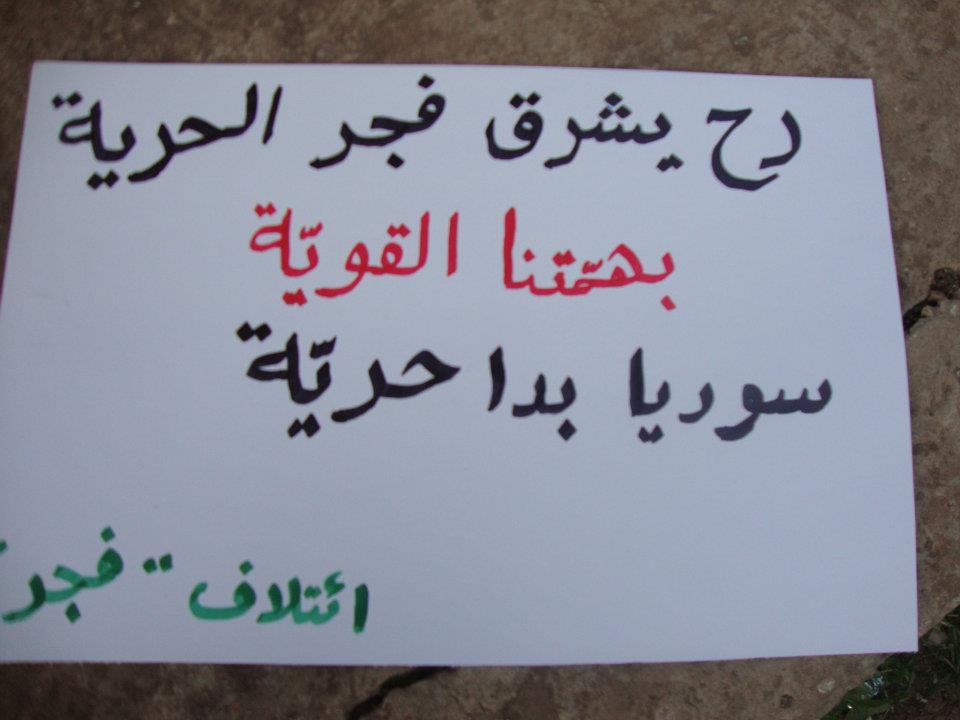 رح يشرق فجر الحرية
بهمّتنا القويّة
سوريا بدا حريّة
ائتلاف "فجر"